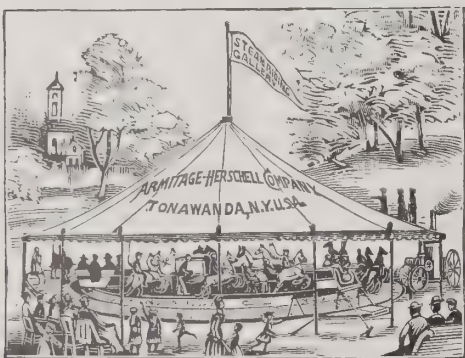 STEAM RIDING
GALLERY
ARMITAGE-HERSCHELL COMPANY
TONAWANDA, N.Y. U.S.A.